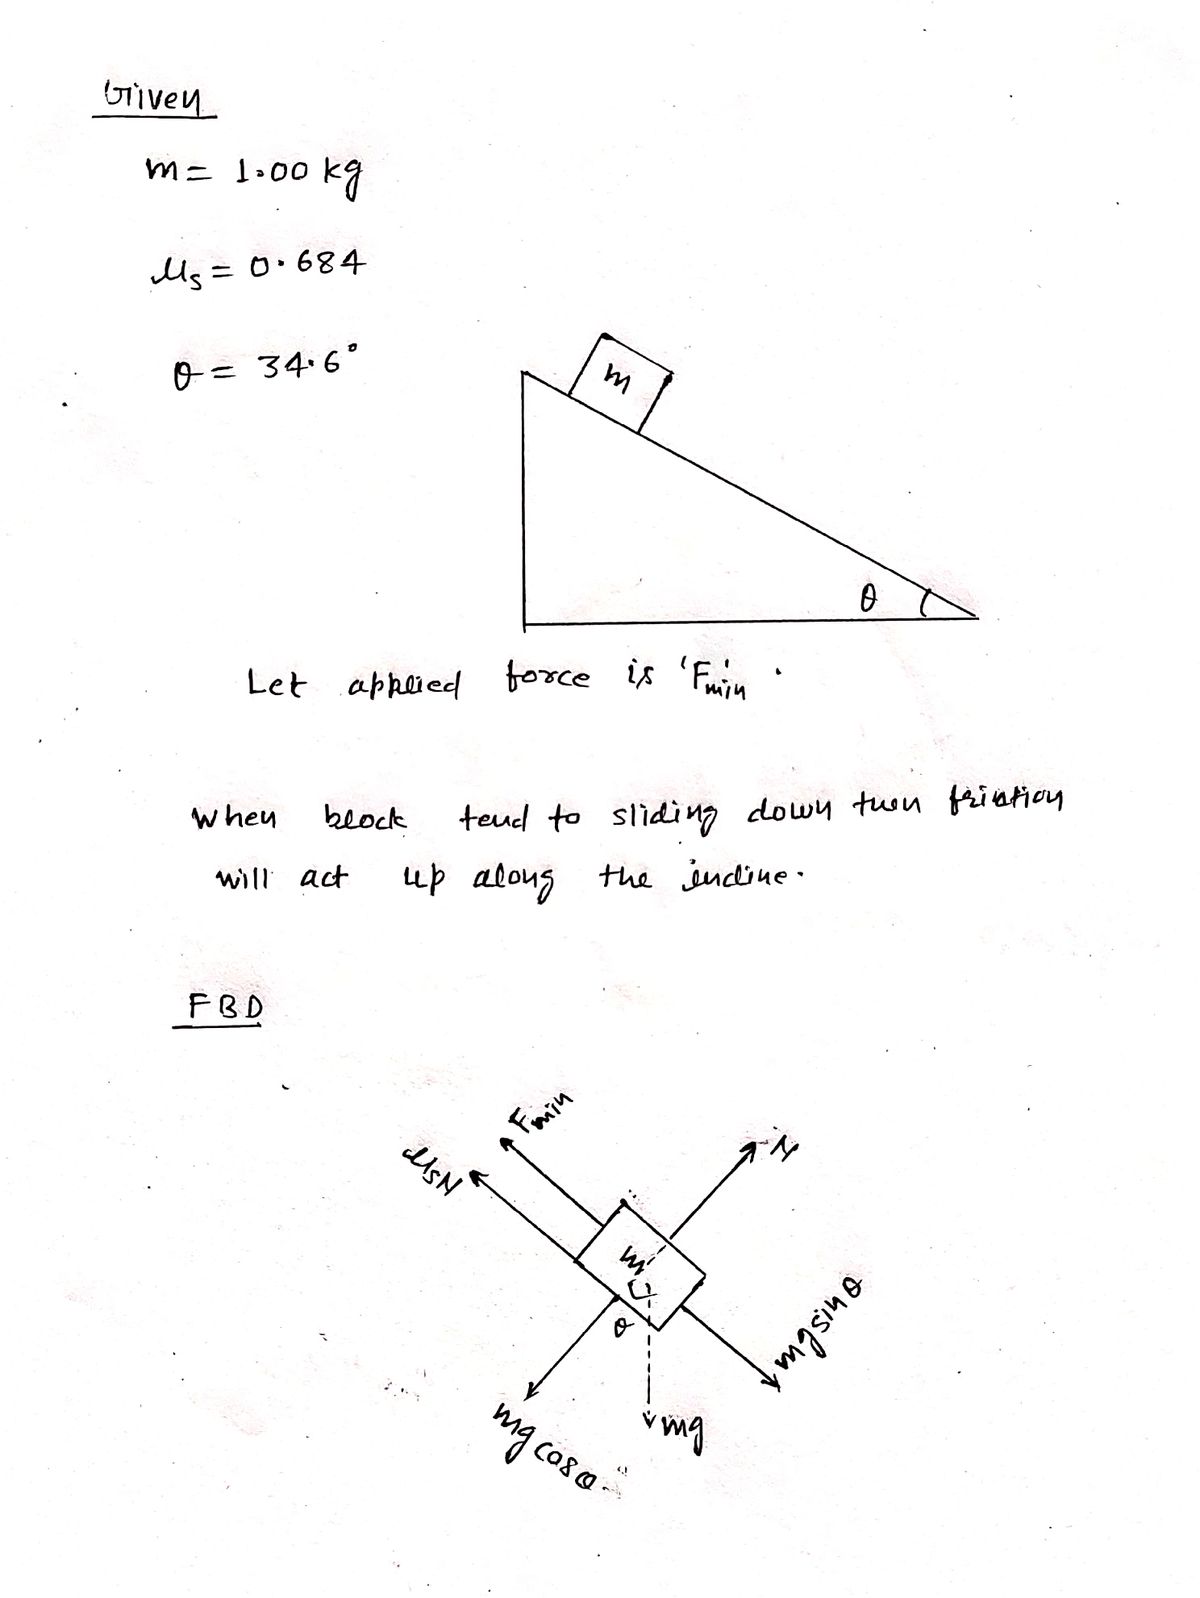 Given
m = 1.00 kg
μs = 0.684
θ = 34.6°
m
θ
Let applied force is 'Fmin'.
When block tend to sliding down then friction
will act up along the incline.
FBD
Fmin
μsN
N
m
θ
mg sinθ
mg
mg cosθ